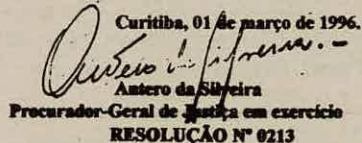 Curitiba, 01 de março de 1996.
Antero da Silveira
Procurador-Geral de Justiça em exercício
RESOLUÇÃO Nº 0213